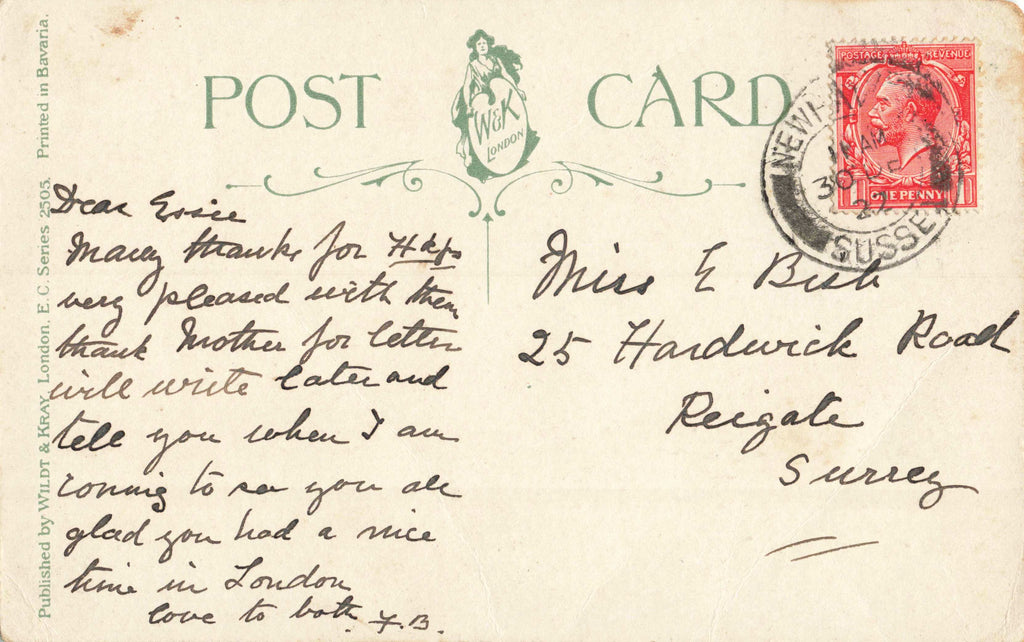 POST CARD
W&K
LONDON
Published by WILDT & KRAY, London. E.C. Series 2505. Printed in Bavaria.
POSTAGE REVENUE
ONE PENNY
AM
30
SUSSE
Dear Essie
Many thanks for
very pleased with them
thank Mother for letter
will write later and
tell you when I am
coming to see you all
glad you had a nice
time in London
love to both. F.B.
Miss E Bish
25 Hardwick Road
Reigate
Surrey